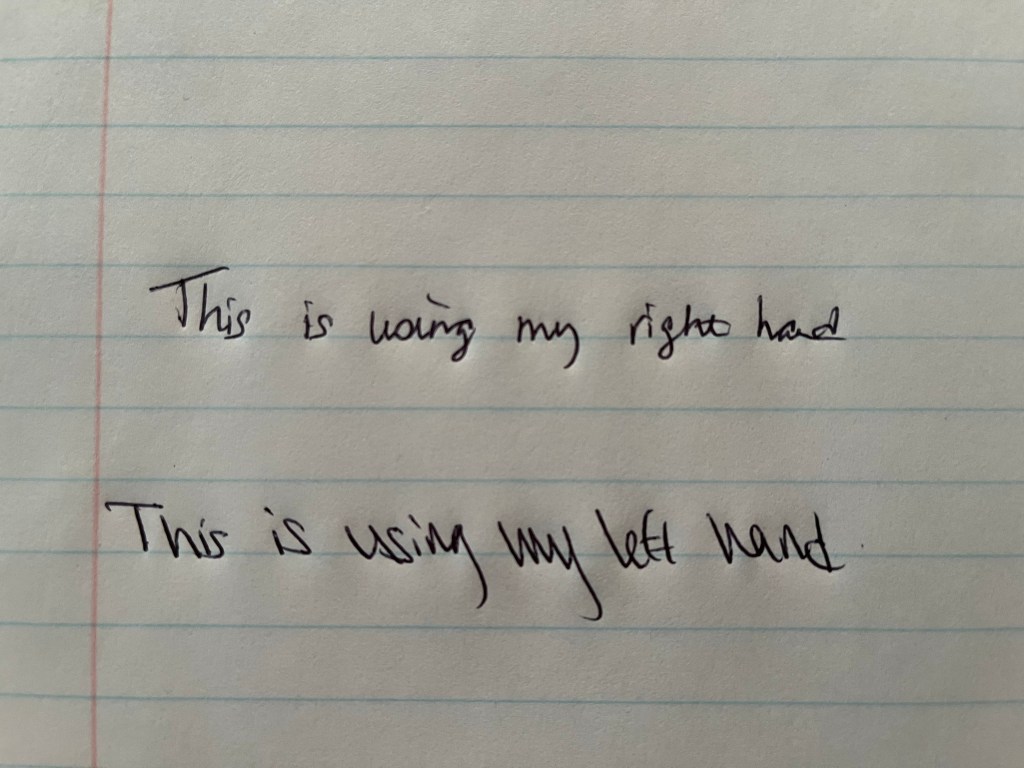 This is using my right hand
This is using my left hand